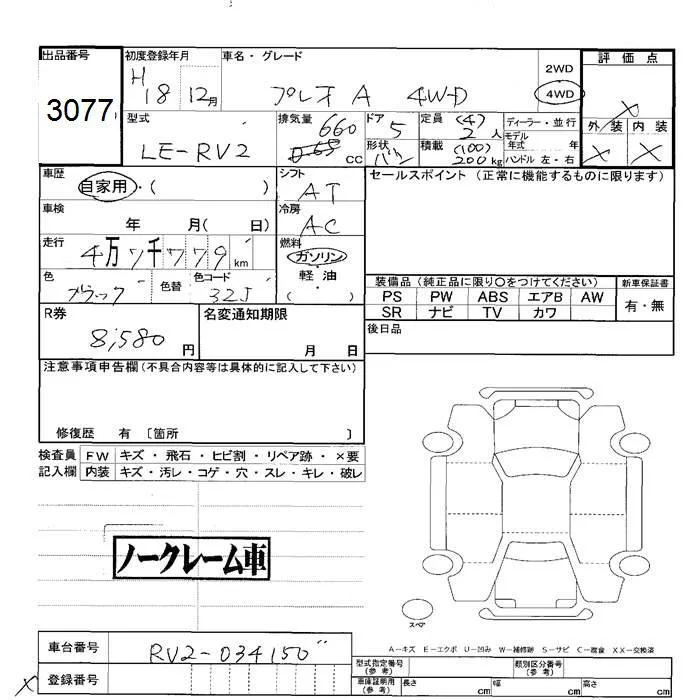 出品番号 初度登録年月 車名・グレード 2WD 評価点
3077 H 18 12月 プレオ A 4WD 4WD ×
型式 排気量 660 ドア 5 定員 (4) 2人 ディーラー・並行 外装 内装
LE-RV2 0.65 cc 形状 バン 積載 (100) 200kg モデル年式 年 × ×
ハンドル 左・右
車歴 自家用・( ) シフト AT セールスポイント (正常に機能するものに限ります)
車検 年 月( 日) 冷房 AC
走行 4万7千779km 燃料 ガソリン
軽油
( )
色 ブラック 色替 色コード 325
装備品 (純正品に限り○をつけてください) 新車保証書
PS PW ABS エアB AW 有・無
SR ナビ TV カワ
R券 8,580円 名変通知期限 月 日
後日品
注意事項申告欄(不具合内容等は具体的に記入して下さい)
修復歴 有 〔箇所 〕
検査員 FW キズ・飛石・ヒビ割・リペア跡・×要
記入欄 内装 キズ・汚レ・コゲ・穴・スレ・キレ・破レ
ノークレーム車
スペア
A-キズ E-エクボ U-凹み W-補修跡 S-サビ C-腐食 XX-交換済
車台番号 RV2-034150
× 登録番号
型式指定番号 (参考) 類別区分番号 (参考)
車庫証明用 (参考) 長さ cm 幅 cm 高さ cm